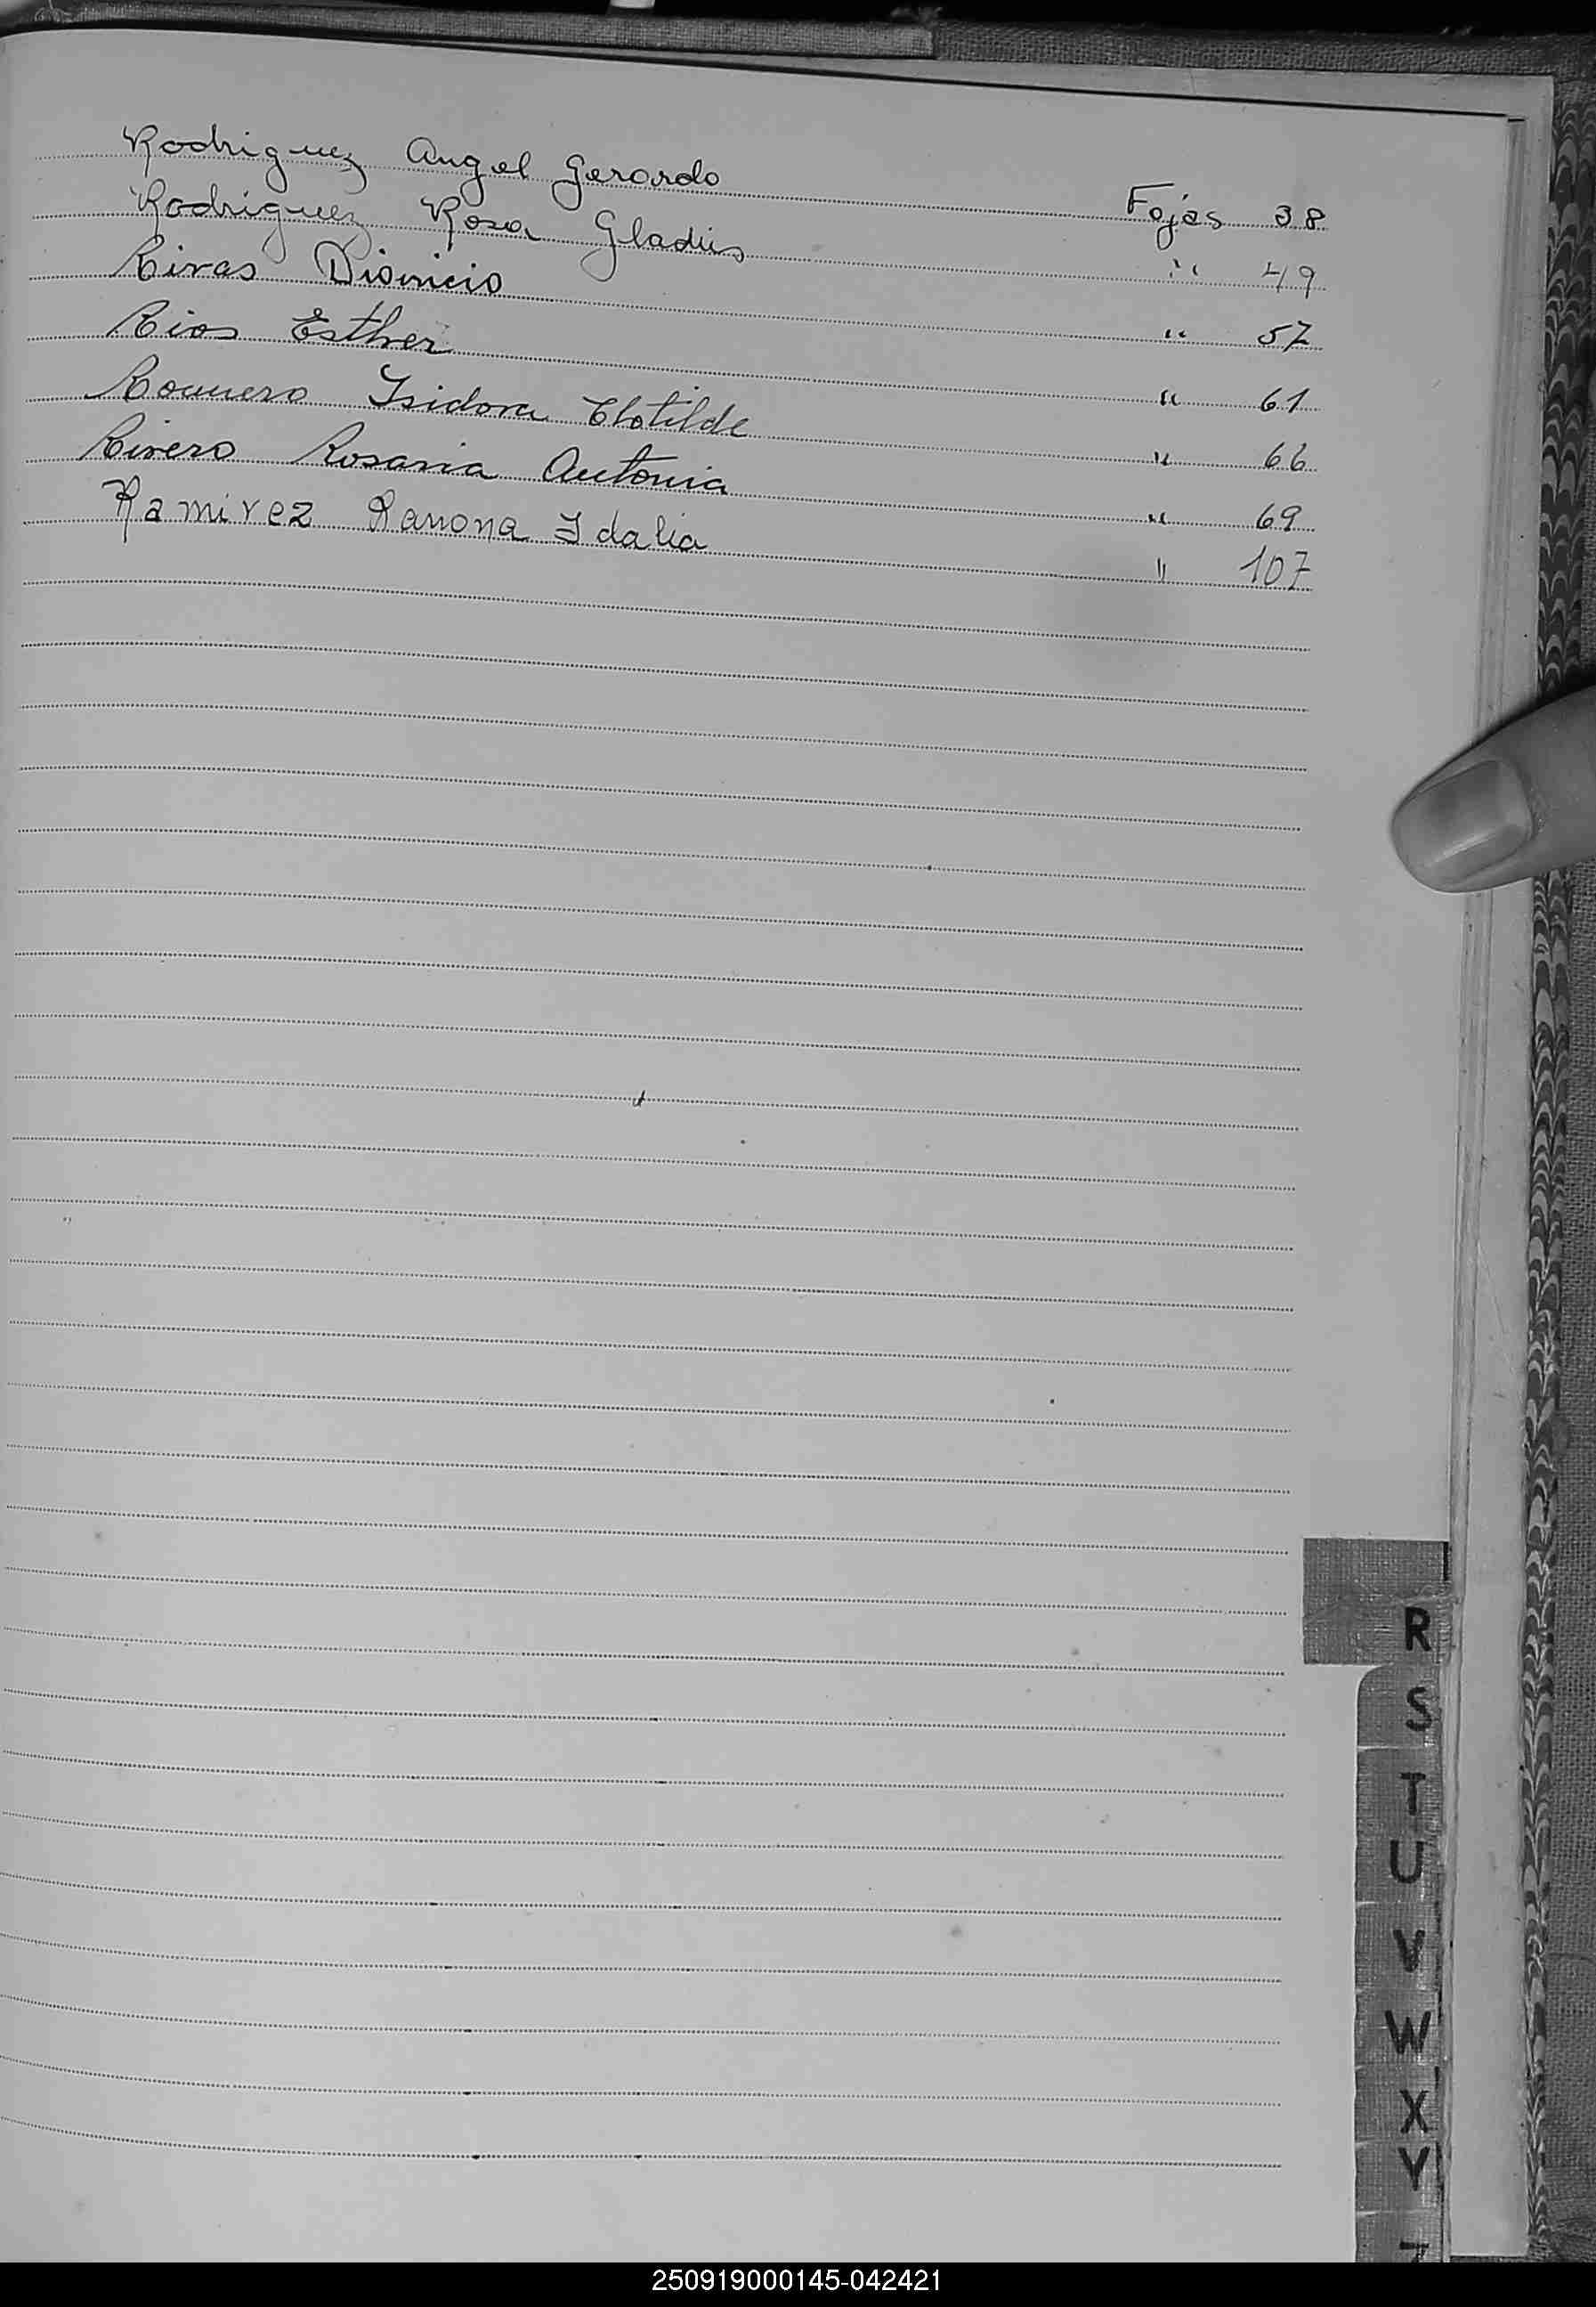 Rodriguez Angel Gerardo Fojas 38
Rodriguez Rosa Gladis " 49
Rivas Dionicio " 57
Rios Esther " 61
Romero Isidora Clotilde " 66
Rivero Rosaria Antonia " 69
Ramirez Ramona Idalia " 107
R
S
T
U
V
W
X
Y
Z
250919000145-042421